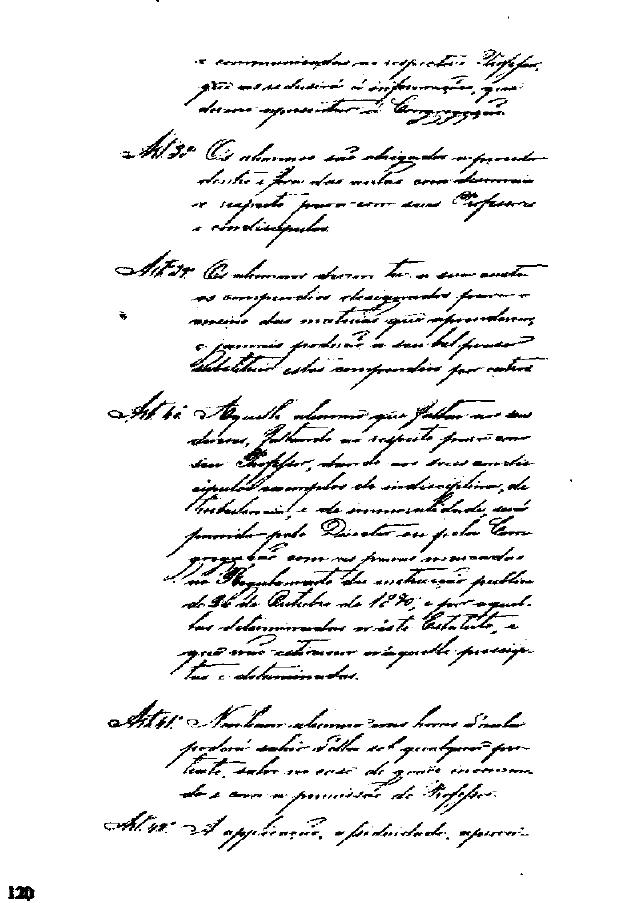 e communicadas ao respectivo Professor,
que as redusirá á informação, que
devem apresentar á Congregação.
Art. 38º Os alumnos são obrigados a proceder
dentro e fora das aulas com decencia
e respeito para com seus Professores
e condiscipulos.
Art. 39º Os alumnos devem ter a sua custa
os compendios designados para o
ensino das materias que aprenderem,
e jamais poderão a seu bel prazer
substituir estes compendios por outros
Art. 40. Aquelle alumno que faltar aos seus
deveres, faltando ao respeito para com
seu Professor, dando aos seus condis-
cipulos exemplos de indisciplina, de
turbulencia, e de immoralidade, será
punido pelo Director ou pela Con-
gregação com as penas marcadas
no Regulamento da instrucção publica
de 26 de Outubro de 1890, e por aquel-
las determinadas n'este Estatuto, e
que não estiverem n'aquelle prescrip-
tas e determinadas.
Art. 41º Nenhum alumno nas horas d'aula
poderá sahir d'ella sob qualquer pre-
texto, salvo no caso de grave incommo-
do e com a permissão do Professor.
Art. 42º A applicação, assiduidade,
120